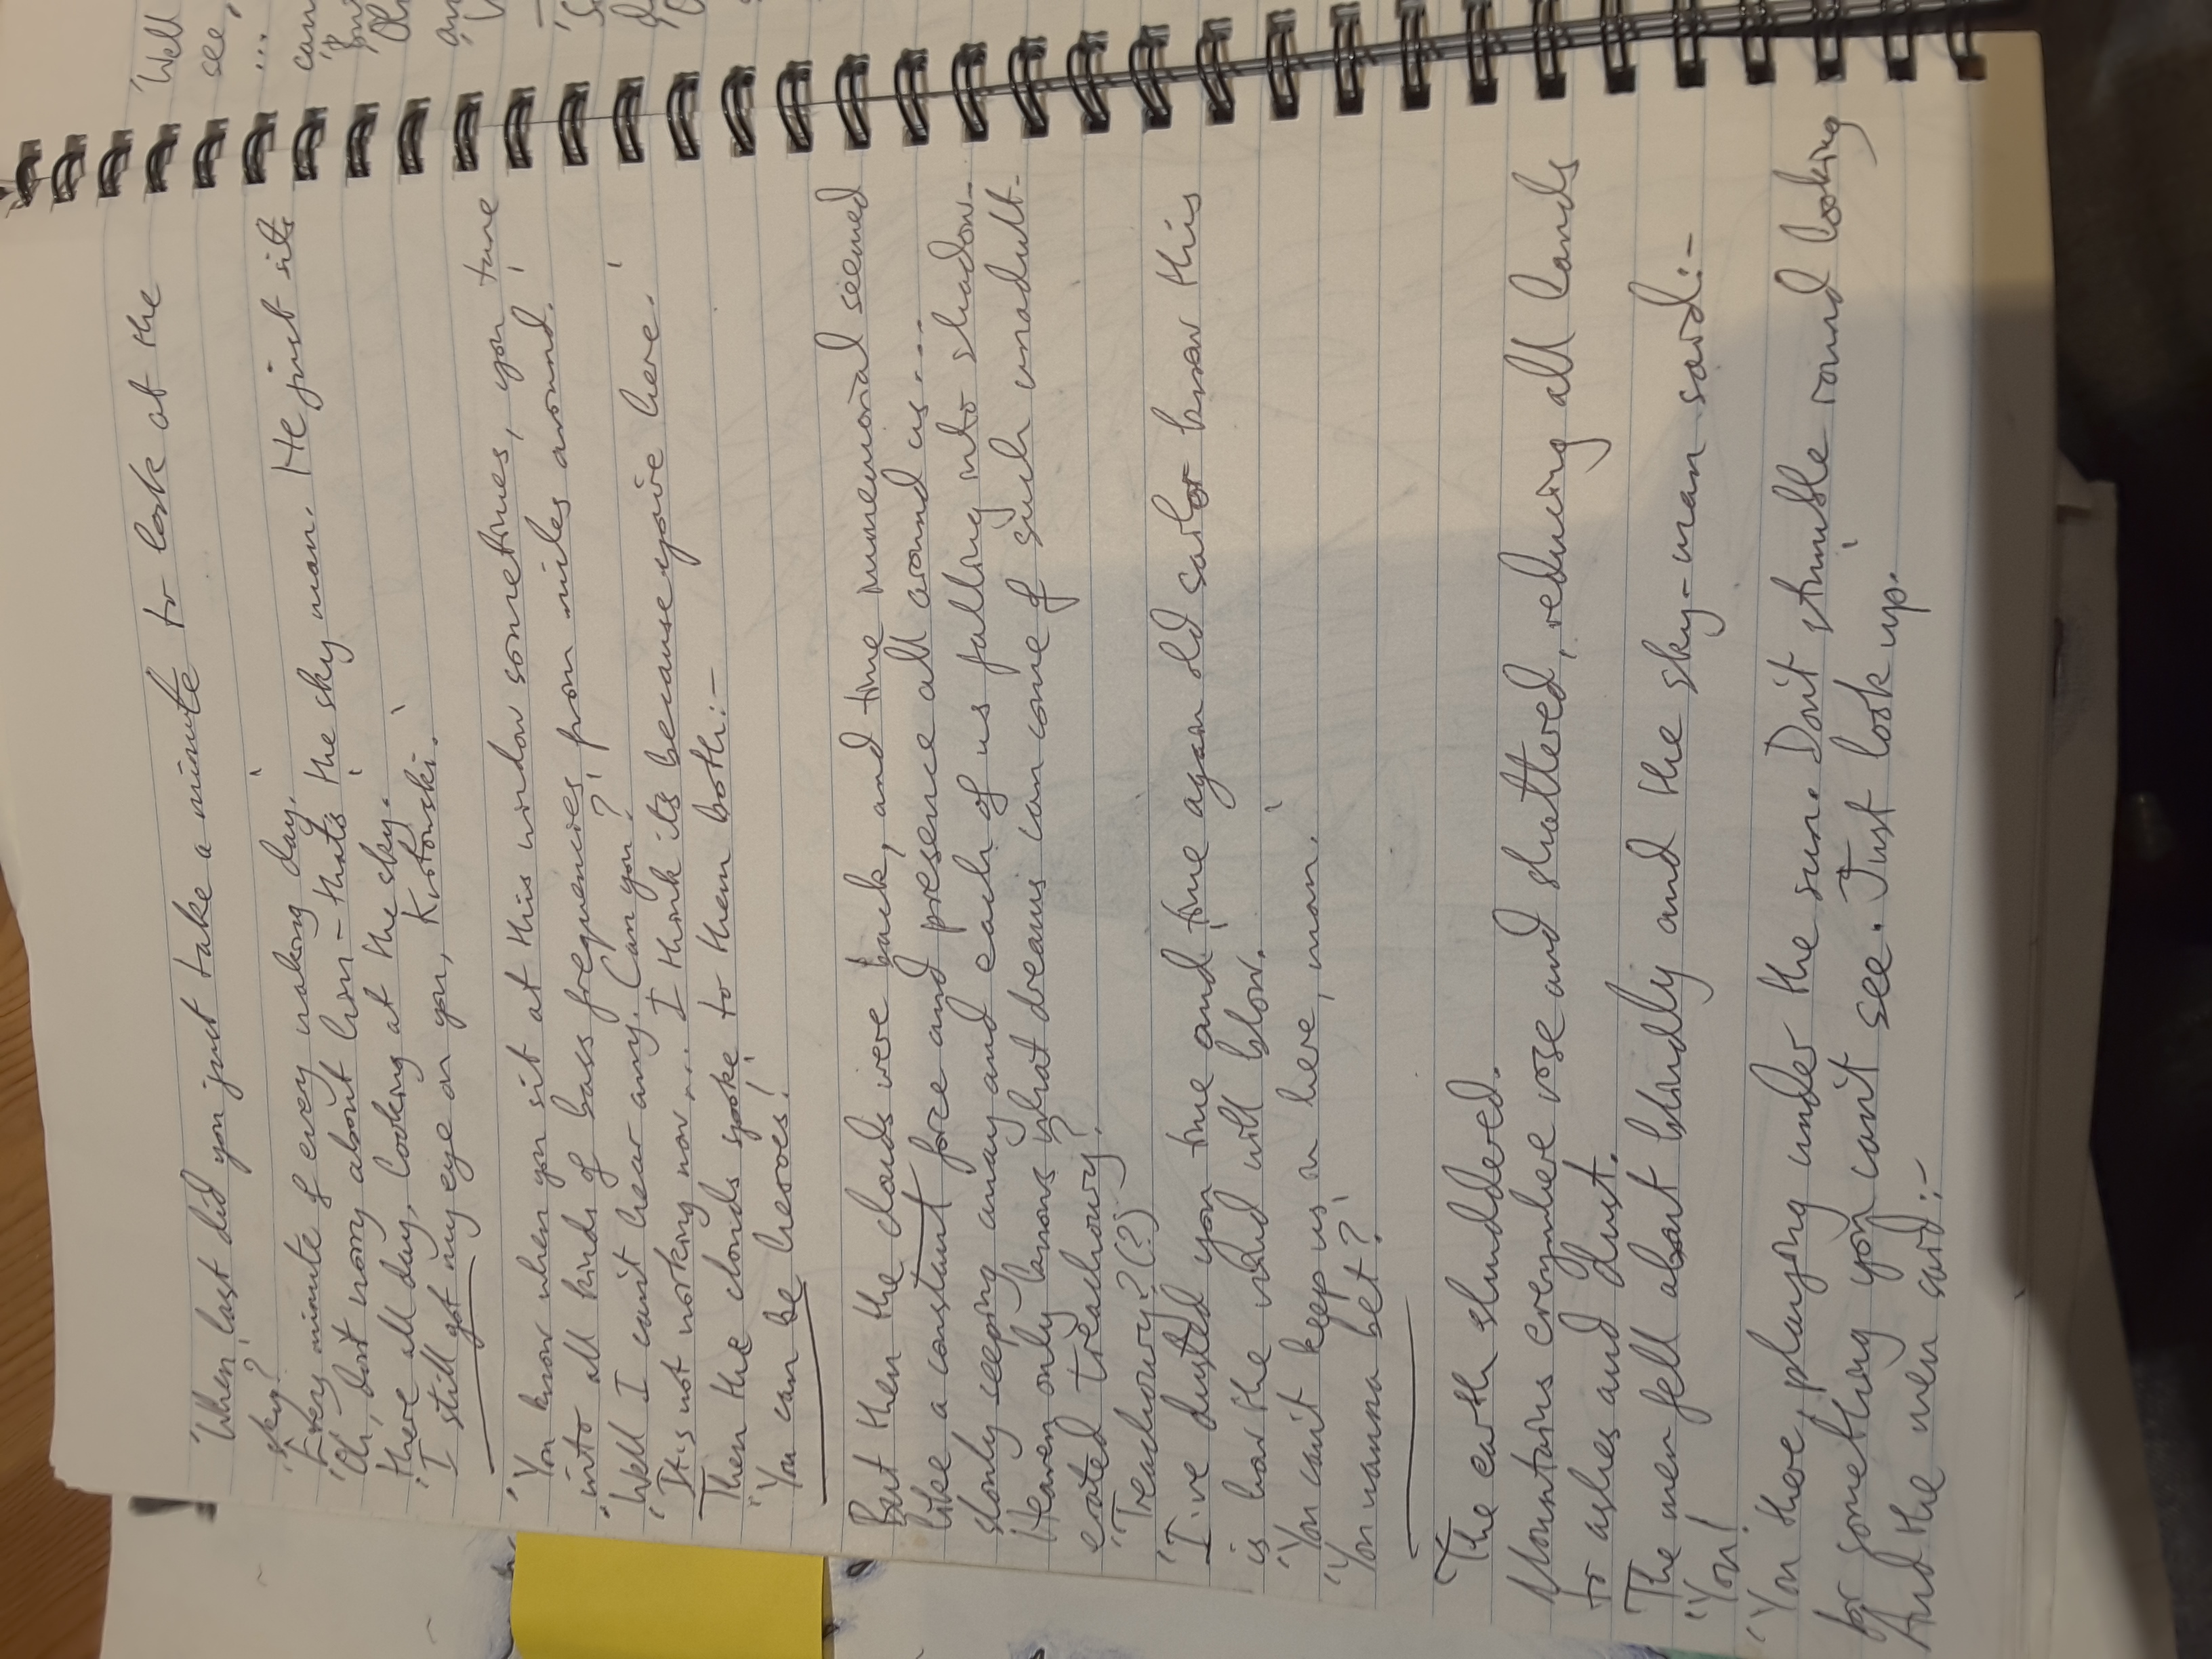 'When last did you just take a minute to look at the
sky?'
'Every minute of every waking day.'
'Oh, don't worry about him – that's the sky man. He just sits
there all day, looking at the sky.'
'I still got my eye on you, Krotowski.'
'You know when you sit at this window sometimes, you tune
into all kinds of bass frequencies, from miles around.'
'Well I can't hear any. Can you?'
'It's not working now.... I think it's because you're here.'
Then the clouds spoke to them both:-
'You can be heroes!'
But then the clouds were back, and time immemorial seemed
like a constant force and presence all around us...
slowly seeping away and each of us falling into shadow.
Heaven only knows what dreams can come of such unadult-
erated treachowry?
'Treachowry?(?)
'I've dusted you time and time again old sailor know this
is how the wind will blow.'
'You can't keep us in here, man.'
'You wanna bet?'
The earth shuddered.
Mountains everywhere rose and shattered, reducing all lands
to ashes and dust.
The men fell about blindly and the sky-man said:-
'You!
'You there, playing under the sun. Don't stumble round looking
for something you can't see. Just look up.'
And the men said:-
'Well
see,
...
can